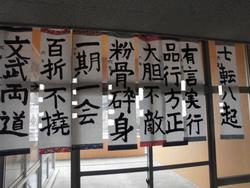 七転八起
有言実行
品行方正
大胆不敵
粉骨砕身
一期一会
百折不撓
文武両道